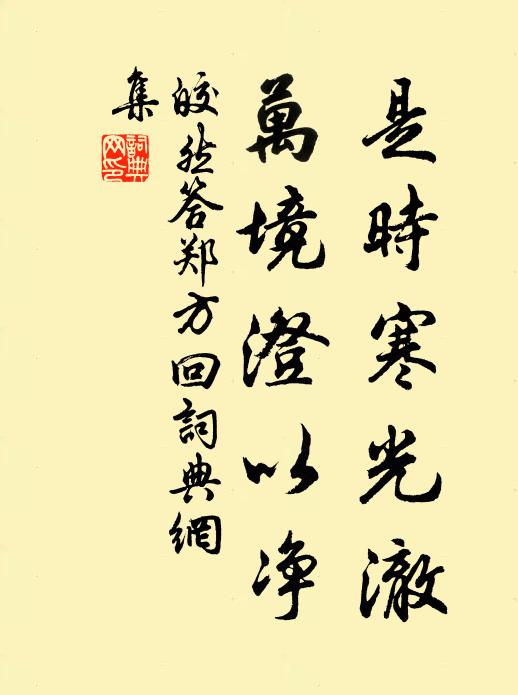 是時寒光澈
萬境澄以净
皎然答郑方回詞典網
集
詞典网印